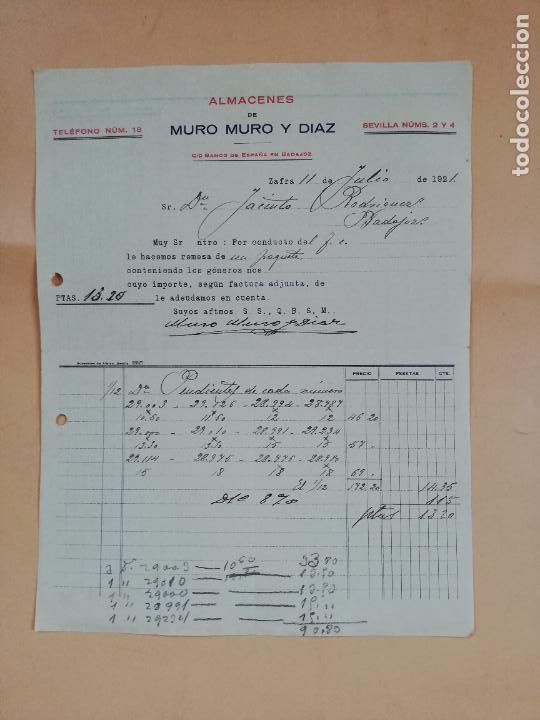 ALMACENES
DE
MURO MURO Y DIAZ
TELÉFONO NÚM. 18
SEVILLA NÚMS. 2 Y 4
C/C BANCO DE ESPAÑA EN BADAJOZ
Zafra 11 de Julio de 1921.
Sr. Dn Jacinto Rodriguez
Badajoz
Muy Sr ntro: Por conducto del f. c.
le hacemos remesa de un paquete
conteniendo los géneros nos
cuyo importe, según factura adjunta, de
PTAS. 13.20 le adeudamos en cuenta.
Suyos aftmos S. S., Q. B. S. M.,
Muro Muro y Diaz
PRECIO PESETAS CTS.
1/12 Dna Pendientes de cada número
29.003 - 29.126 - 28.994 - 28.987
10.60 11.60 12 12 46.20
29.000 - 29.010 - 28.991 - 29.234
13.30 13.30 15 15 57.
29.114 - 28.976 - 28.975 -
15 18 18 18 69.
El 1/12 172.20 14.35
Dto 8% 1.15
Ptas 13.20
3 Ds. 29003 — 10.60 33.80
1 " 29010 — 13.30
1 " 29000 — 13.30
1 " 28991 — 15 "
1 " 29234 — 15 "
90.80
todocoleccion.net